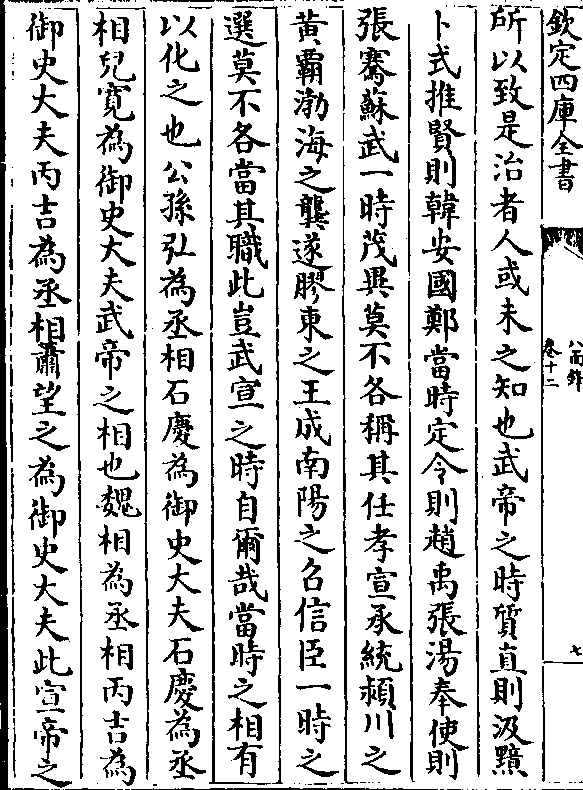 欽定四庫全書
八面鋒
卷十二
七
所以致是治者人或未之知也武帝之時質直則汲黯
卜式推賢則韓安國鄭當時定令則趙禹張湯奉使則
張騫蘇武一時茂異莫不各稱其任孝宣承統潁川之
黃霸渤海之龔遂膠東之王成南陽之召信臣一時之
選莫不各當其職此豈武宣之時自爾哉當時之相有
以化之也公孫弘為丞相石慶為御史大夫石慶為丞
相兒寛為御史大夫武帝之相也魏相為丞相丙吉為
御史大夫丙吉為丞相蕭望之為御史大夫此宣帝之